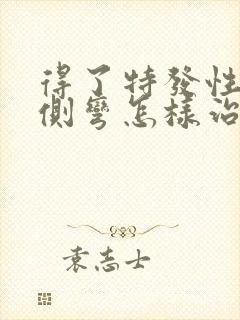 得了特發性
側彎怎樣治
袁志士